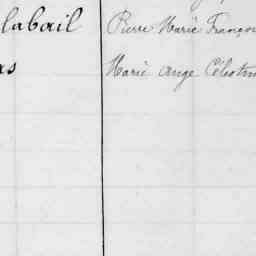 labail Pierre Marie François
as Marie Ange Célestin